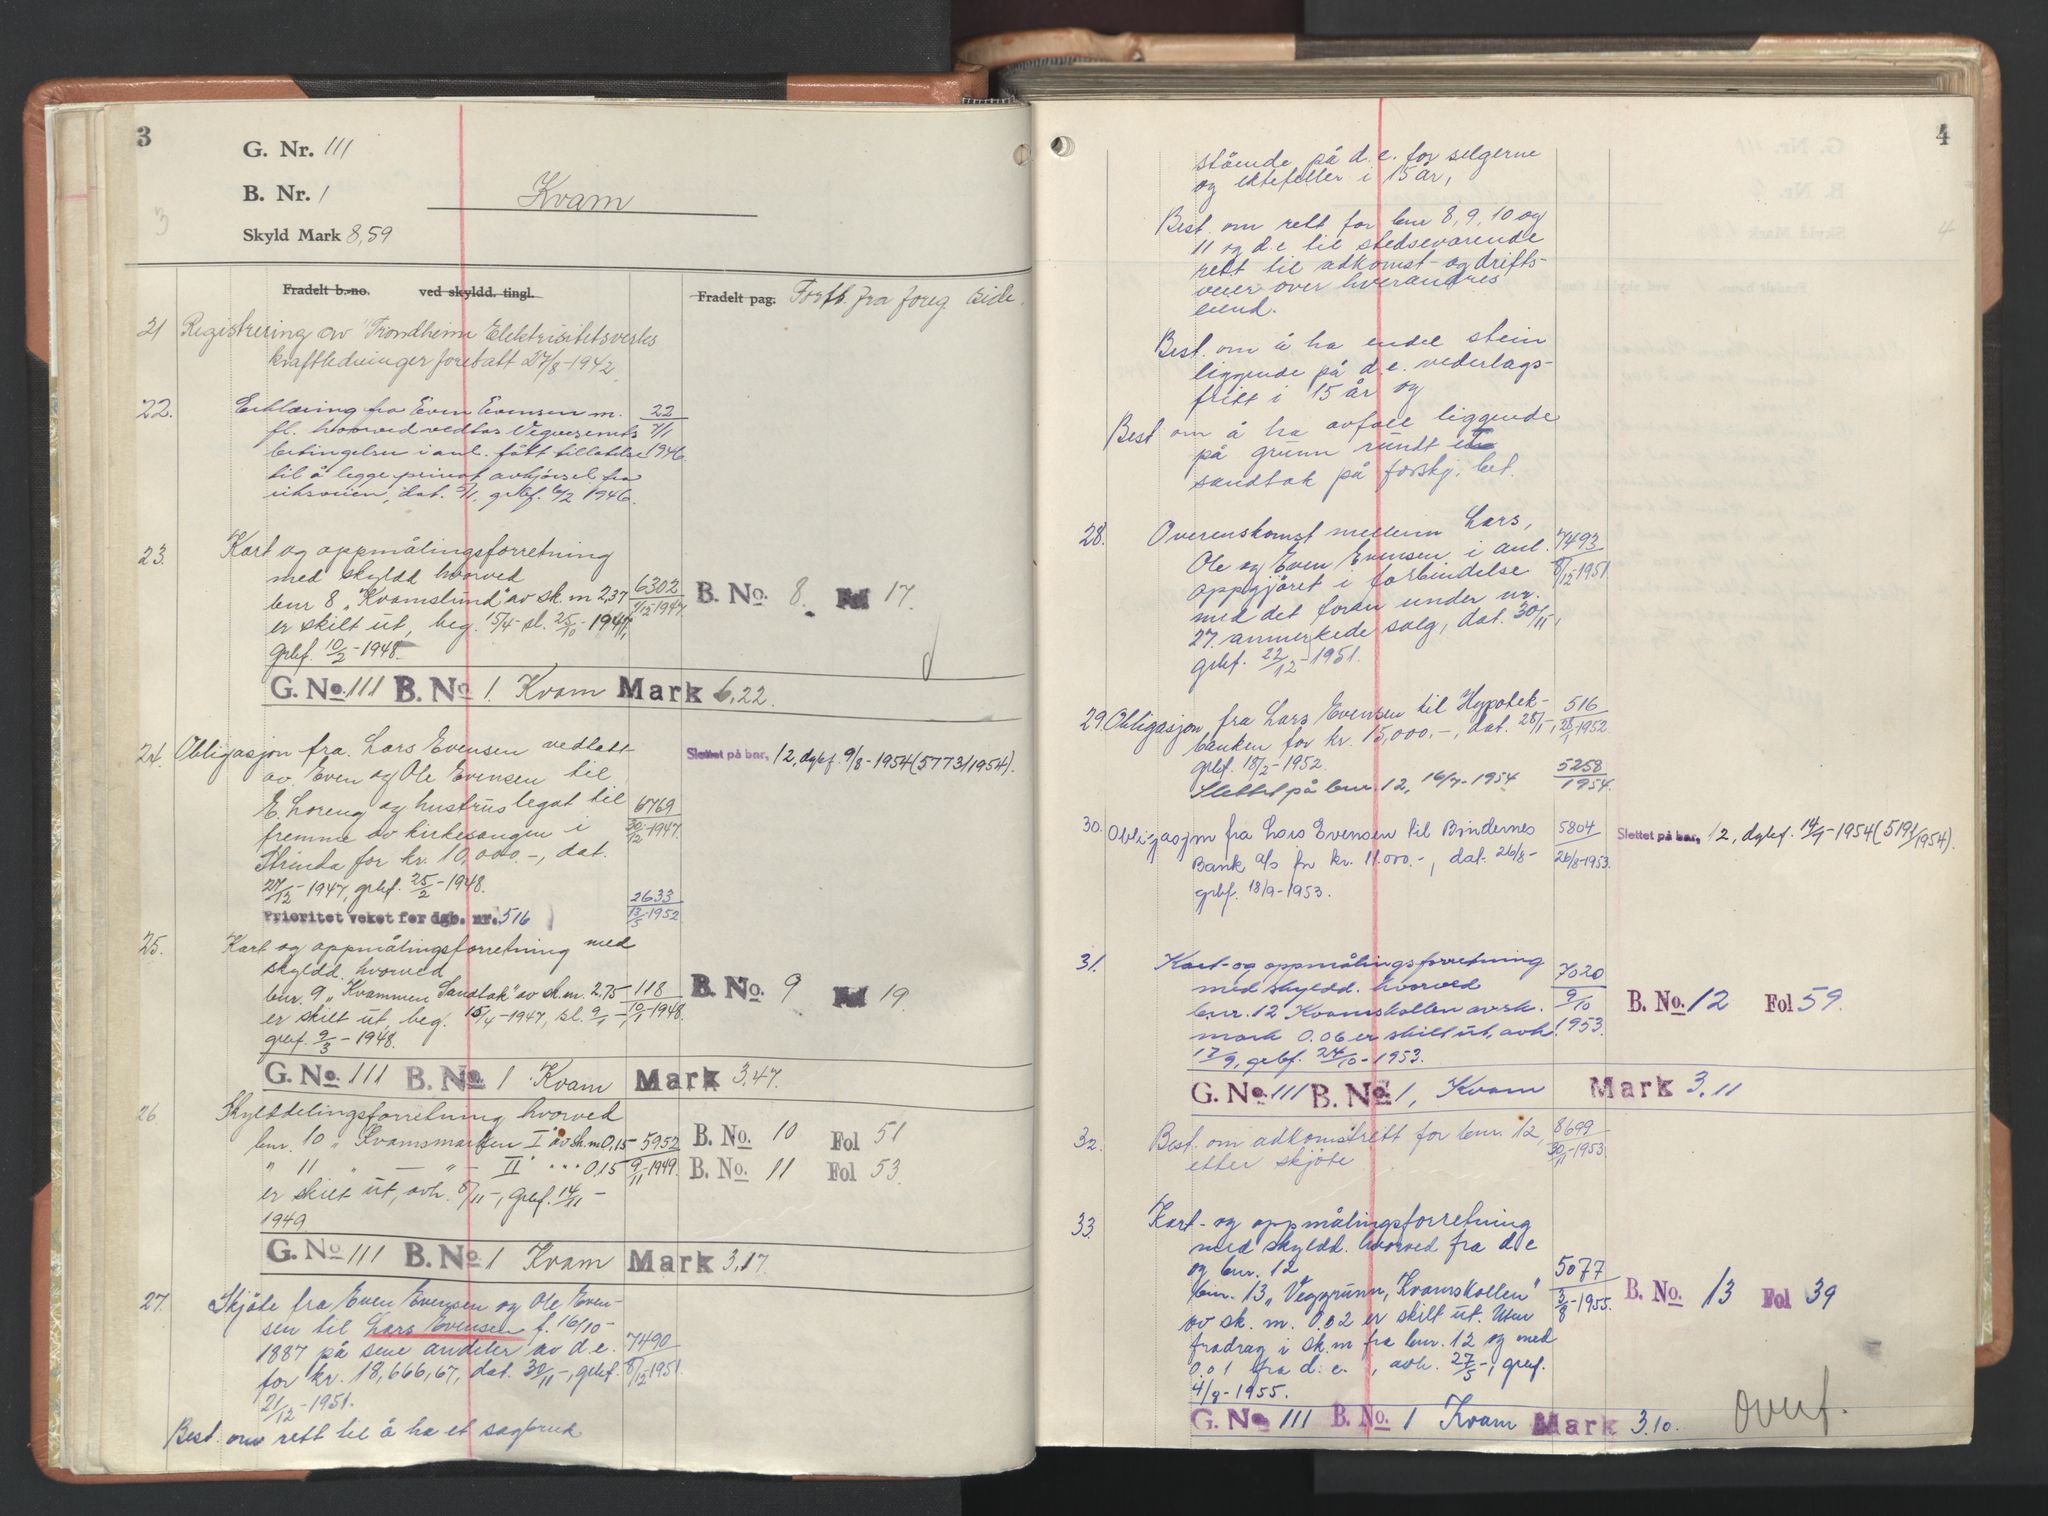 3
G. Nr. 111
B. Nr. 1 Kvam
Skyld Mark 8,59
Fradelt b.-no. ved skyldd. tingl. Fradelt pag. Fortb. fra foreg. side.
21 Registrering av Trondheim Elektrisitetsverks
kraftledninger foretatt 27/8-1942
22. Erklæring fra Even Evensen m. 22
fl. hvorved vedtas Vegvesenets 7/1
betingelser i anl. fått tillatelse 1946
til å legge privat avkjørsel fra
riksveien, dat. 5/1, grbf. 6/2 1946.
23. Kart og oppmålingsforretning
med skyldd hvorved 6302
bnr 8 „Kvamslund" av sk. m 2,37 1/12-1947. B. No. 8. Fol 17.
er skilt ut, beg. 15/4- sl. 25/10-1947,
grbf. 10/2-1948.
G. No. 111 B. No 1. Kvam Mark 6,22.
24. Obligasjon fra Lars Evensen vedtatt Slettet på bnr, 12, dgbf. 9/8-1954 (5773/1954).
av Even og Ole Evensen til
E. Loreng og hustrus legat til 6769
fremme av kirkesangen i 30/12-1947.
Strinda for kr. 10,000.-, dat.
27/12-1947, grbf. 25/2-1948. 2633
Prioritet veket for dgb. nr. 516 13/5-1952
25. Kart og oppmålingsforretning med
skyldd. hvorved
bnr. 9 „Kvammen Sandtak" av sk. m. 2,75 118 B. No. 9 Fol 19.
er skilt ut, beg. 15/4-1947, sl. 9/1-, 10/1-1948.
grbf. 9/3-1948.
G. No. 111 B. No. 1 Kvam Mark 3,47.
26. Skylddelingsforretning hvorved
bnr. 10 „Kvamsmarken I" av sk.m 0,15 5952 B. No. 10 Fol 51
" 11 " — " — II" ... 0,15 9/11-1949. B. No. 11 Fol 53.
er skilt ut, avh. 8/11-, grbf. 14/11-
1949
G. No 111 B. No 1 Kvam Mark 3,17.
27. Skjøte fra Even Evensen og Ole Even-
sen til Lars Evensen f. 16/10-
1887 på sine andeler av d.e. 7490
for kr. 18,666,67, dat. 30/11-, grbf. 8/12-1951.
21/12-1951.
Best. om rett til å ha et sagbruk
4
stående på d.e. for selgerne
og ektefeller i 15 år,
Best. om rett for bnr 8, 9, 10 og
11 og d.e. til stedsevarende
rett til adkomst- og drifts-
veier over hverandres
eiend.
Best. om å ha endel stein
liggende på d.e. vederlags-
fritt i 15 år og
Best. om å ha avfall liggende
på grunn rundt et
sandtak på forskj. bet.
28. Overenskomst mellem Lars,
Ole og Even Evensen i anl. 7493
oppgjøret i forbindelse 8/12-1951
med det foran under nr.
27 anmerkede salg, dat. 30/11,
grbf. 22/12-1951.
29. Obligasjon fra Lars Evensen til Hypotek- 516
banken for kr. 15,000.-, dat. 28/1-, 28/1-1952.
grbf. 18/2-1952. 5258
Slettet på bnr. 12, 16/7-1954 1954.
30. Obligasjon fra Lars Evensen til Bøndernes 5804 Slettet på bnr, 12, dgbf. 14/9-1954 (5191/1954).
Bank a/s for kr. 11.000.-, dat. 26/8- 26/8-1953.
grbf. 18/9-1953.
31. Kart- og oppmålingsforretning 7020
med skyldd. hvorved 9/10
bnr. 12 Kvamskollen av sk. B. No. 12 Fol 59.
mark 0.06 er skilt ut, avh. 1953.
17/9, grbf. 24/10-1953.
G. No. 111 B. No. 1, Kvam Mark 3,11
32. Best. om adkomstrett for bnr. 12, 8699
etter skjøte 30/11-1953
33. Kart- og oppmålingsforretning
med skyldd. hvorved fra d.e
og bnr. 12 5077
bnr. 13 „Veggrunn, Kvamskollen" 3/8-1955. B. No. 13 Fol 39
av sk. m. 0.02 er skilt ut. Uten
fradrag i sk.m fra bnr. 12 og med
0.01 fra d.e., avh. 27/5-, grbf.
4/9-1955.
G. No 111 B. No. 1 Kvam Mark 3.10. Overf.